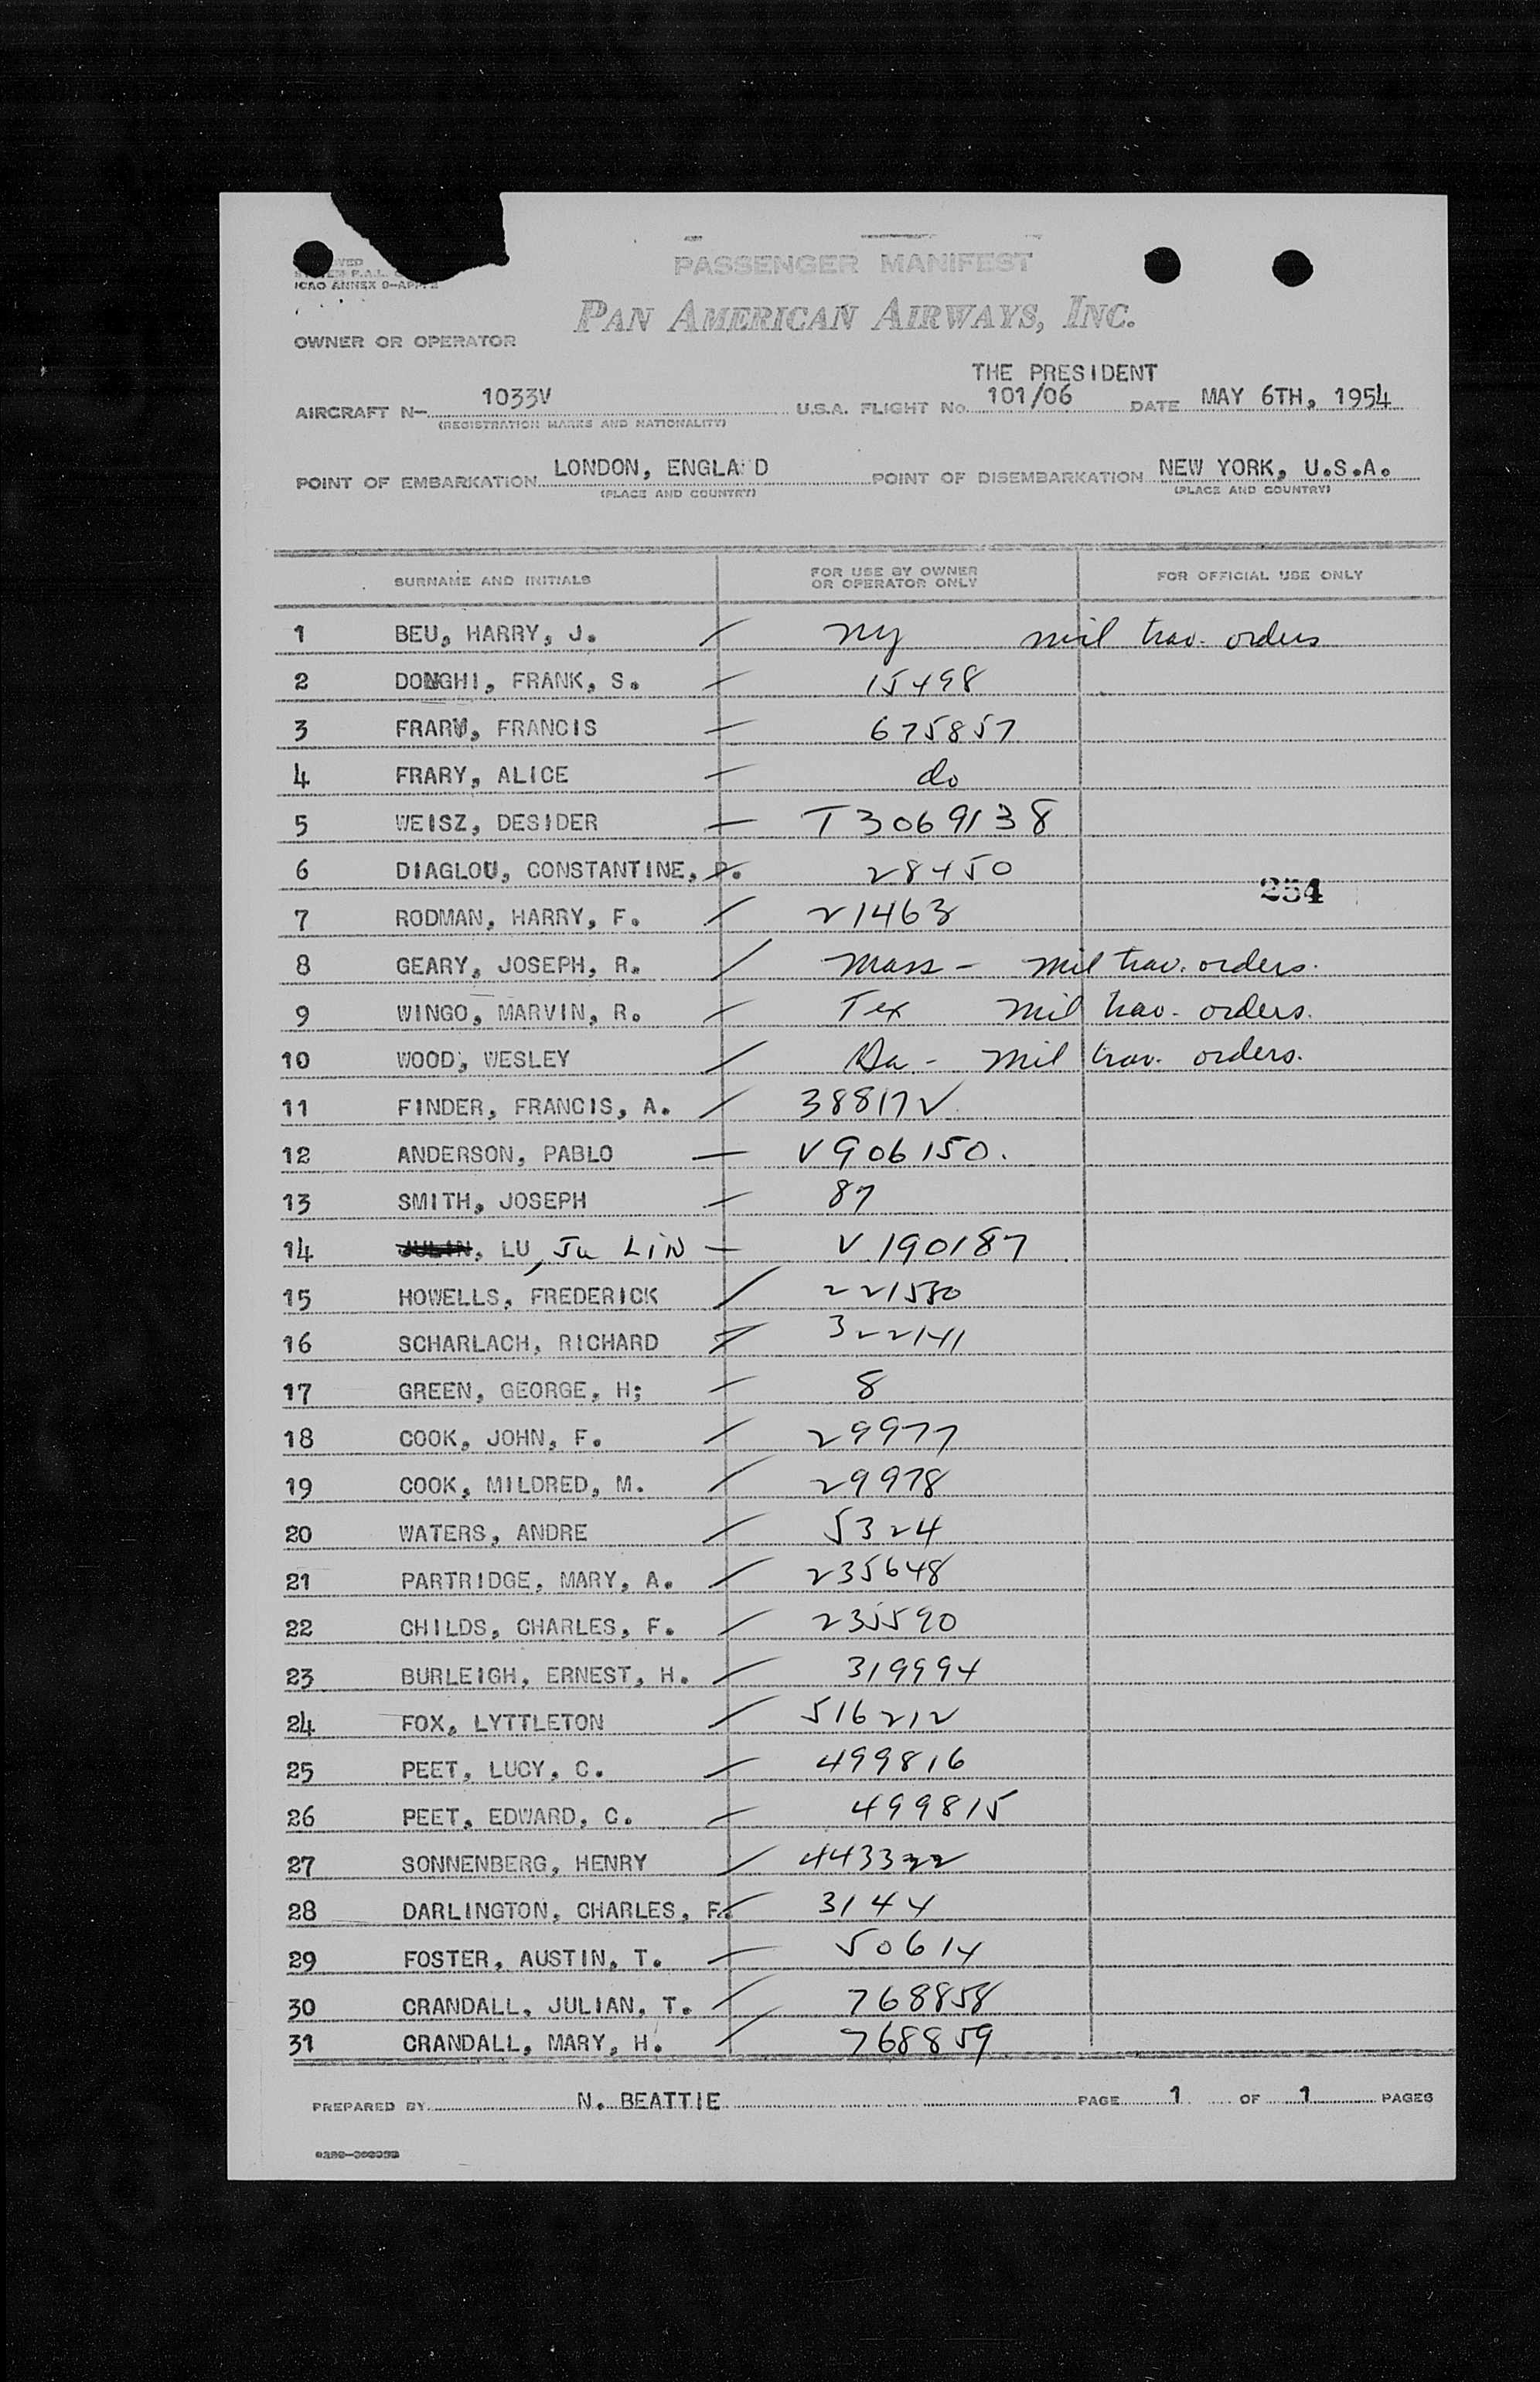 PASSENGER MANIFEST
ICAO ANNEX 9-APP. 2
PAN AMERICAN AIRWAYS, INC.
OWNER OR OPERATOR
THE PRESIDENT
AIRCRAFT N- 1033V U.S.A. FLIGHT No. 101/06 DATE MAY 6TH, 1954
(REGISTRATION MARKS AND NATIONALITY)
POINT OF EMBARKATION LONDON, ENGLAND POINT OF DISEMBARKATION NEW YORK, U.S.A.
(PLACE AND COUNTRY) (PLACE AND COUNTRY)
SURNAME AND INITIALS FOR USE BY OWNER OR OPERATOR ONLY FOR OFFICIAL USE ONLY
1 BEU, HARRY, J. / NY mil trav. orders
2 DONGHI, FRANK, S. — 15498
3 FRARY, FRANCIS — 675857
4 FRARY, ALICE — do
5 WEISZ, DESIDER — T3069138
6 DIAGLOU, CONSTANTINE, P. 28450
254
7 RODMAN, HARRY, F. / 21463
8 GEARY, JOSEPH, R. / Mass - mil trav. orders.
9 WINGO, MARVIN, R. — Tex mil trav. orders.
10 WOOD, WESLEY / - mil trav. orders.
11 FINDER, FRANCIS, A. / 388172
12 ANDERSON, PABLO — V906150.
13 SMITH, JOSEPH — 87
14 JULIN, LU, Ju LiN — V 190187
15 HOWELLS, FREDERICK / 221580
16 SCHARLACH, RICHARD / 322141
17 GREEN, GEORGE, H; — 8
18 COOK, JOHN, F. / 29977
19 COOK, MILDRED, M. / 29978
20 WATERS, ANDRE / 5324
21 PARTRIDGE, MARY, A. / 235648
22 CHILDS, CHARLES, F. / 235590
23 BURLEIGH, ERNEST, H. / 319994
24 FOX, LYTTLETON / 516212
25 PEET, LUCY, C. — 499816
26 PEET, EDWARD, C. — 499815
27 SONNENBERG, HENRY / 443322
28 DARLINGTON, CHARLES, F. / 3144
29 FOSTER, AUSTIN, T. — 50614
30 CRANDALL, JULIAN, T. / 768858
31 CRANDALL, MARY, H. / 768859
PREPARED BY N. BEATTIE PAGE 1 OF 1 PAGES